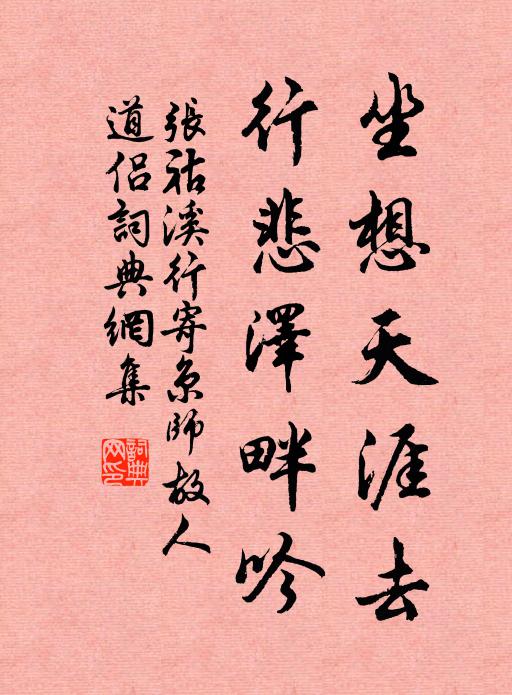 坐想天涯去
行悲澤畔吟
張祜溪行寄京師故人
道侶詞典網集
詞典网印